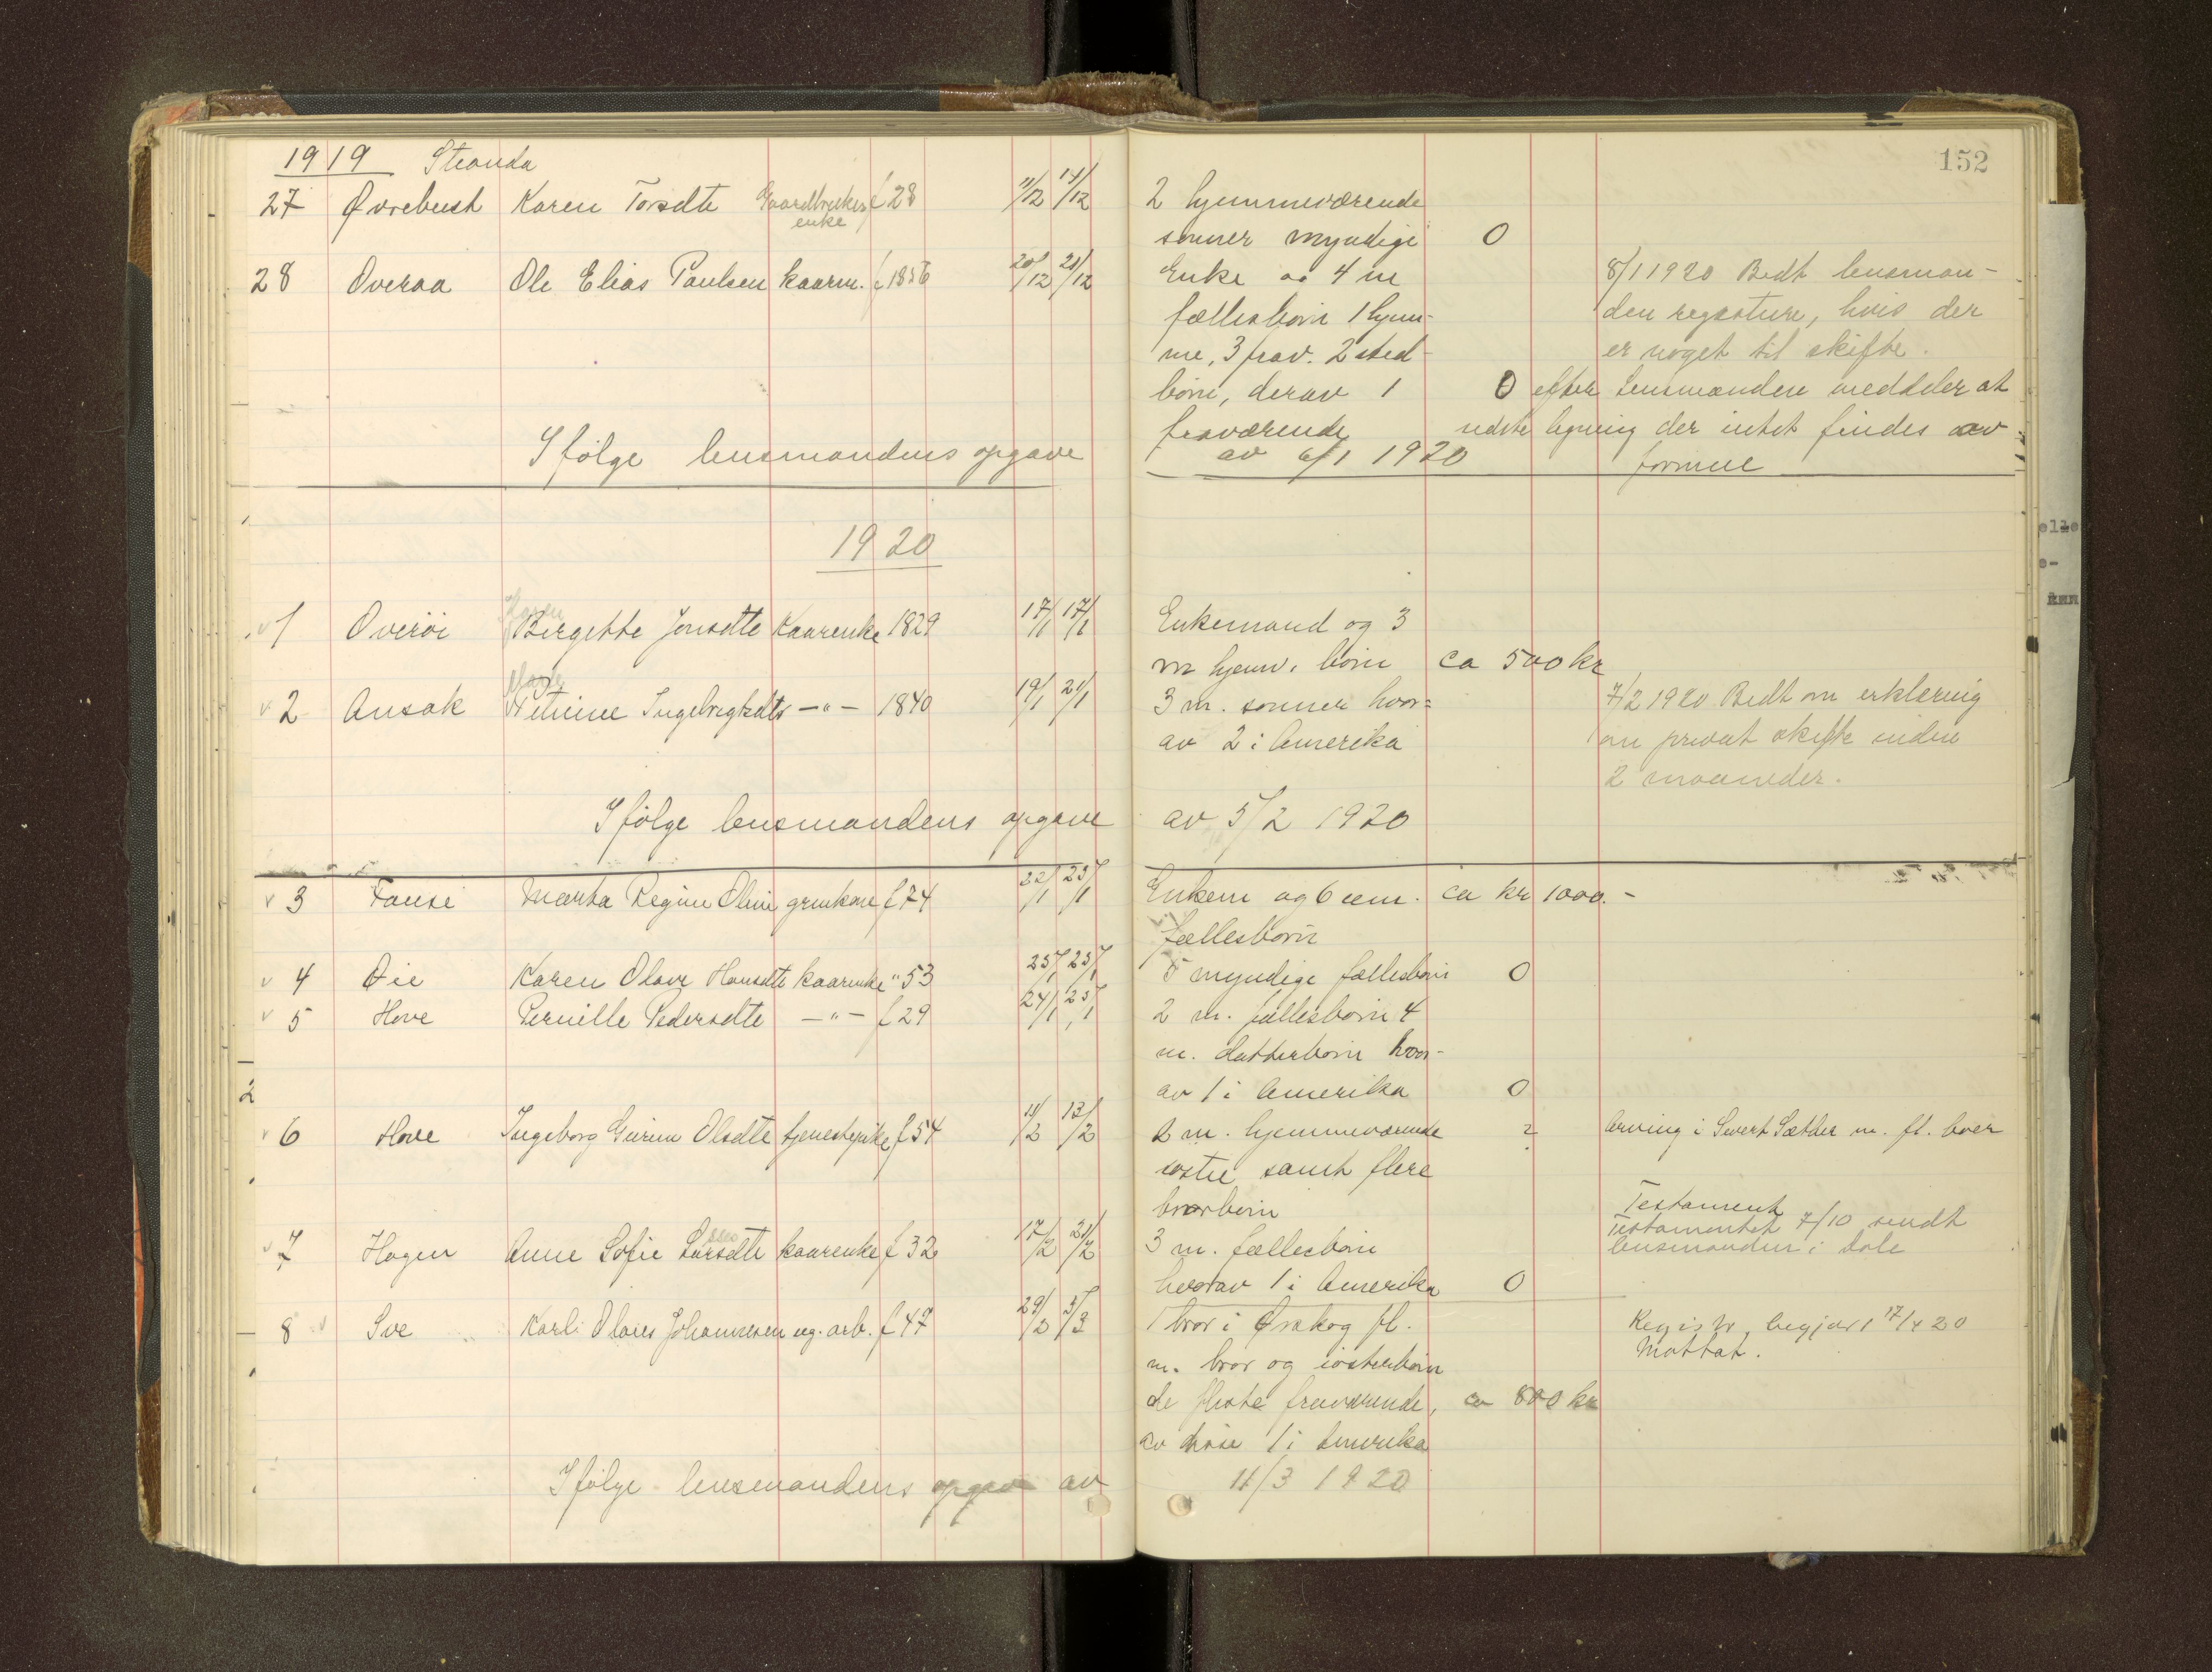 152
1919 Stranda
27 Øvrebust Karen Torsdte Gaardbrukers f 28 11/12 14/12 2 hjemmeværende
enke sønner myndige 0
28 Overaa Ole Elias Paulsen kaarm. f 1856 20/12 21/12 Enke og 4 m
fællesbørn 1 hjem-
me, 3 frav. 2 sted
børn, derav 1
fraværende
8/1 1920 Bedt lensman-
den registrere, hvis der
er noget til skifte.
0 efter Lensmanden meddeler at
sidste ligning der intet findes av
formue
Ifølge lensmandens opgave av 6/1 1920
1920
v 1 Overøi Karen
Birgitte Jonsdtte Kaarenke 1829 17/1 17/1 Enkemand og 3
m hjemv. børn ca 500 kr
v 2 Ansok Marte
Petrine Ingebrigtsdtr —"— 1840 19/1 21/1 3 m. sønner hvor=
av 2 i Amerika
7/2 1920 Bedt om erklæring
om privat skifte inden
2 maaneder.
Ifølge lensmandens opgave av 5/2 1920
v 3 Fausi Marta Regine Oline grmkone f 74 22/1 25/1 Enkem og 6 um. ca kr 1000.-
fællesbørn
v 4 Øie Karen Olave Hansdtte kaarenke " 53 25/1 25/1 5 myndige fællesbørn 0
v 5 Hove Pernille Pedersdtte —"— f 29 24/1 25/1 2 m. fællesbørn 4
m. datterbørn hvor-
av 1 i Amerika 0
2
v 6 Hove Ingeborg Gurine Olsdtte tjenestepike f 54 11/2 13/2 2 m. hjemmeværende ? Arving i Sivert Sæther m. fl. boer
søstre samt flere
brorbørn
v 7 Hagen Anne Sofie Larsdtte kaarenke f 32 17/2 21/2 3 m. fællesbørn
hvorav 1 i Amerika 0
Testament
Testamentet 7/10 sendt
lensmanden i Dale
8 v Sve Karl Olaus Johannesen ug. arb. f 47 29/2 5/3 1 bror i Ørskog fl.
m. bror og søsterbørn
de fleste fraværende, ca 800 kr
av disse 1 i Amerika
Registr. begjært 17/4 20
Mottat.
Ifølge lensmandens opgave av 11/3 1920
elle
e-